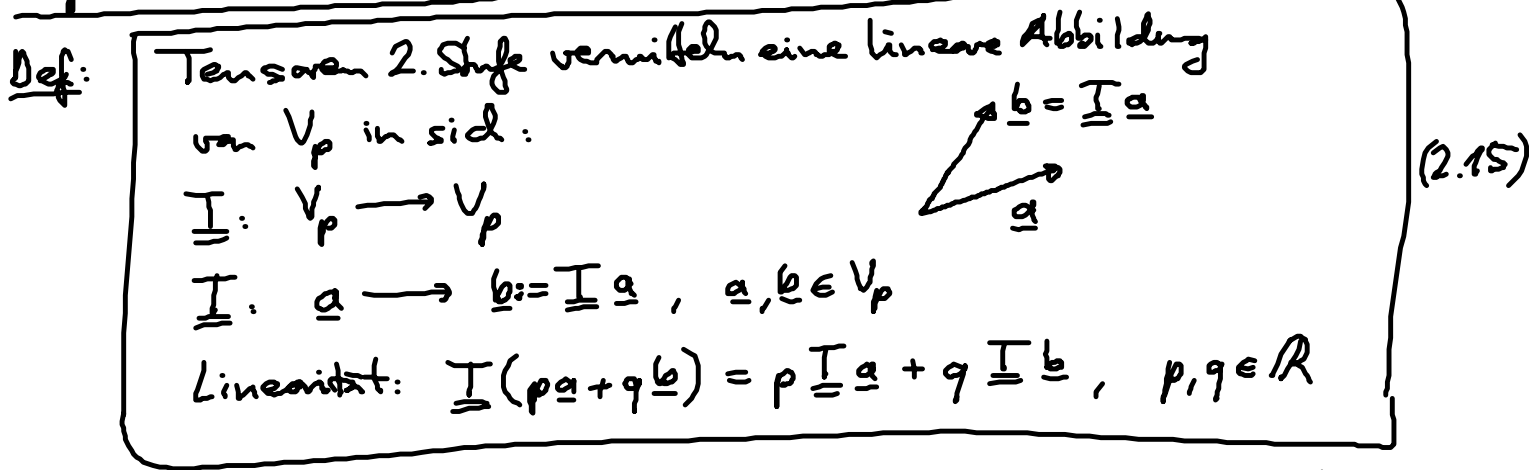 Def: Tensoren 2. Stufe vermitteln eine lineare Abbildung
von V_p in sich:
b = T a
a
(2.15)
T: V_p → V_p
T: a → b := T a , a, b ∈ V_p
Linearität: T(pa + qb) = p T a + q T b , p, q ∈ ℝ